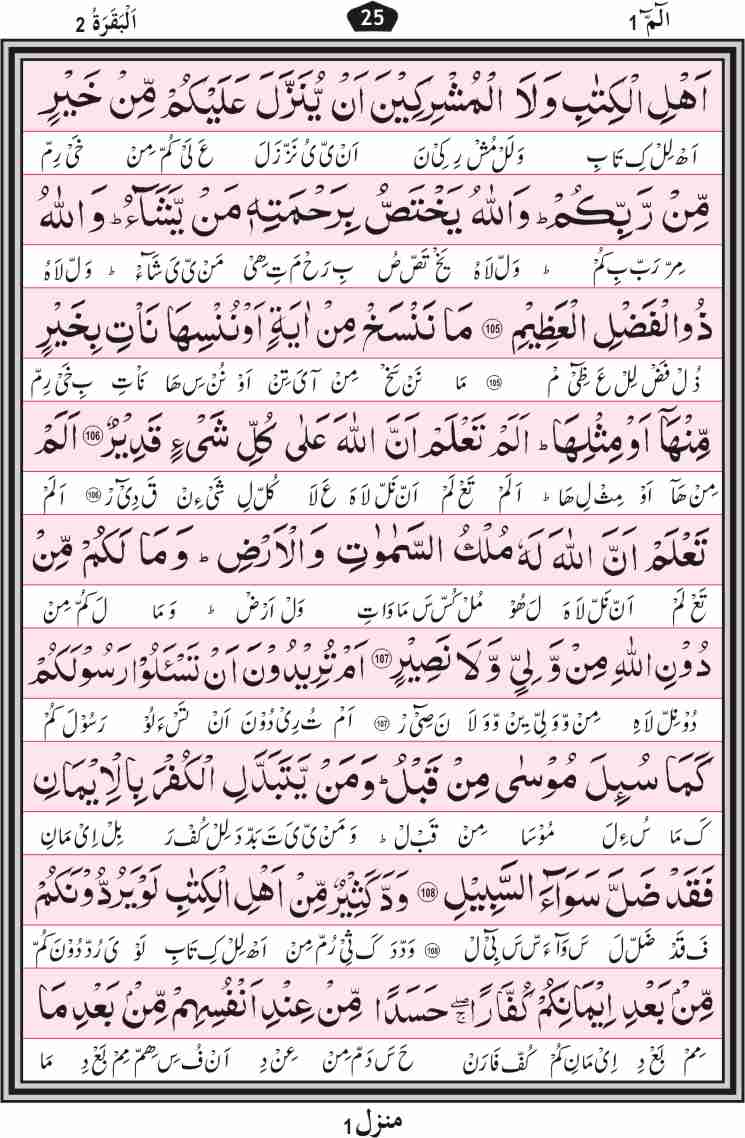 الٓمّٓ 1 25 اَلْبَقَرَةُ 2
اَهْلِ الْكِتٰبِ وَلَا الْمُشْرِكِيْنَ اَنْ يُّنَزَّلَ عَلَيْكُمْ مِّنْ خَيْرٍ
اَهْ لِلْ كِ تَا بِ وَ لَلْ مُشْ رِ كِىْ نَ اَنْ ىُّ نَزْ زَ لَ عَ لَىْ كُمْ مِنْ خَىْ رِمّ
مِّنْ رَّبِّكُمْ ؕ وَاللّٰهُ يَخْتَصُّ بِرَحْمَتِهٖ مَنْ يَّشَآءُ ؕ وَاللّٰهُ
مِرّ رَبْ بِ كُمْ ؕ وَلّ لَا هُ يَخْ تَصْ صُ بِ رَحْ مَ تِ هِىْ مَنْ ىّ ىَ شَآءْ ؕ وَلّ لَا هُ
ذُوالْفَضْلِ الْعَظِيْمِ 105 مَا نَنْسَخْ مِنْ اٰيَةٍ اَوْنُنْسِهَا نَاْتِ بِخَيْرٍ
ذُ لْ فَضْ لِلْ عَ ظِىْٓ مْ 105 مَا نَنْ سَخْ مِنْ آ ىَ تِنْ اَوْ نُنْ سِ هَا نَاْ تِ بِ خَىْ رِمّ
مِّنْهَآ اَوْمِثْلِهَا ؕ اَلَمْ تَعْلَمْ اَنَّ اللّٰهَ عَلٰى كُلِّ شَىْءٍ قَدِيْرٌ 106 اَلَمْ
مِنْ هَآ اَوْ مِثْ لِ هَا ؕ اَلَمْ تَعْ لَمْ اَنْ نَلّ لَا هَ عَ لَا كُلّ لِ شَىْ ءِنْ قَ دِىْٓ رْ 106 اَلَمْ
تَعْلَمْ اَنَّ اللّٰهَ لَهٗ مُلْكُ السَّمٰوٰتِ وَالْاَرْضِ ؕ وَمَا لَكُمْ مِّنْ
تَعْ لَمْ اَنْ نَلّ لَا هَ لَ هُوْ مُلْ كُسّ سَ مَا وَا تِ وَلْ اَرْضْ ؕ وَ مَا لَ كُمّ مِنْ
دُوْنِ اللّٰهِ مِنْ وَّلِىٍّ وَّلَا نَصِيْرٍ 107 اَمْ تُرِيْدُوْنَ اَنْ تَسْـَٔلُوْا رَسُوْلَكُمْ
دُوْ نِلّ لَا هِ مِنْ وّ وَ لِىّ يِنْ وّ وَ لَا نَ صِىْٓ رْ 107 اَمْ تُ رِىْ دُوْ نَ اَنْ تَسْ ءَ لُوْ رَ سُوْ لَ كُمْ
كَمَا سُىِٕلَ مُوْسٰى مِنْ قَبْلُ ؕ وَمَنْ يَّتَبَدَّلِ الْكُفْرَ بِالْاِيْمَانِ
كَ مَا سُ ءِ لَ مُوْ سَا مِنْ قَبْ لْ ؕ وَ مَنْ ىّ ىَ تَ بَدْ دَ لِلْ كُفْ رَ بِلْ اِىْ مَا نِ
فَقَدْ ضَلَّ سَوَآءَ السَّبِيْلِ 108 وَدَّ كَثِيْرٌ مِّنْ اَهْلِ الْكِتٰبِ لَوْيَرُدُّوْنَكُمْ
فَ قَدْ ضَلّ لَ سَ وَآ ءَسّ سَ بِىْٓ لْ 108 وَدْ دَ كَ ثِىْ رُمّ مِنْ اَهْ لِلْ كِ تَا بِ لَوْ ىَ رُدّ دُوْ نَ كُمّ
مِّنْۢ بَعْدِ اِيْمَانِكُمْ كُفَّارًا ۖۚ حَسَدًا مِّنْ عِنْدِ اَنْفُسِهِمْ مِّنْۢ بَعْدِ مَا
مِمْ بَعْ دِ اِىْ مَا نِ كُمْ كُفّ فَا رَنْ حَ سَ دَمّ مِنْ عِنْ دِ اَنْ فُ سِ هِمّ مِمْ بَعْ دِ مَا
منزل 1